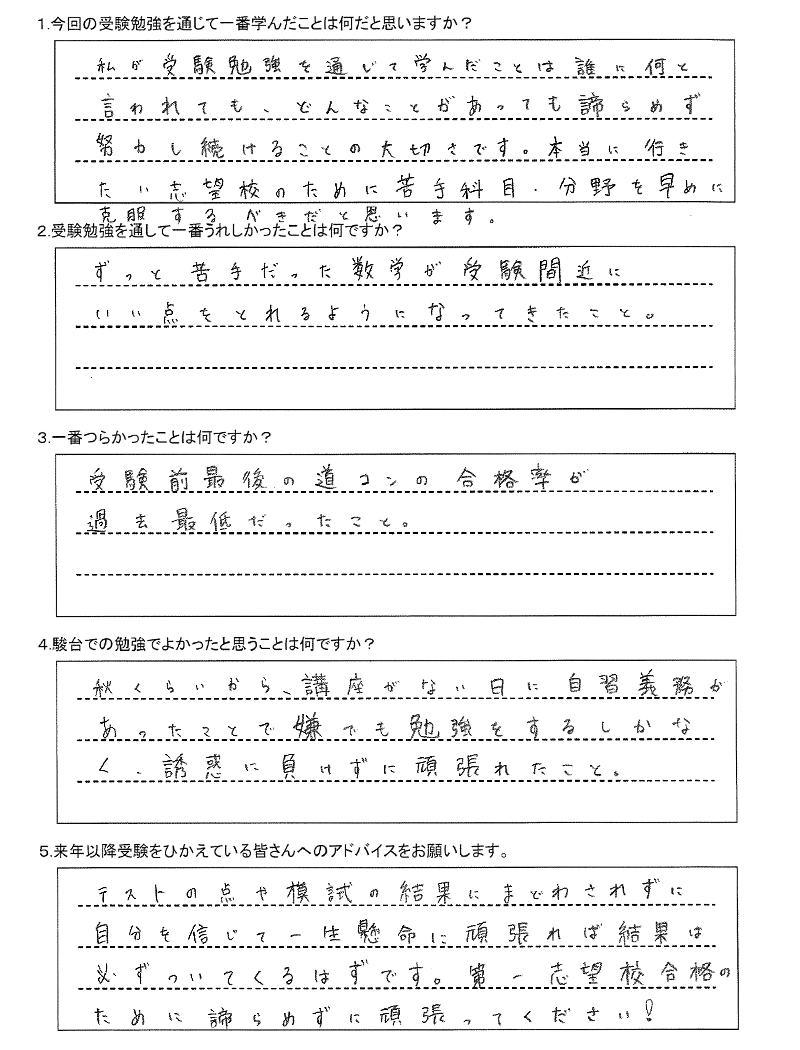 1.今回の受験勉強を通じて一番学んだことは何だと思いますか？
私が受験勉強を通じて学んだことは誰に何と
言われても、どんなことがあっても諦らめず
努力し続けることの大切さです。本当に行き
たい志望校のために苦手科目・分野を早めに
克服するべきだと思います。
2.受験勉強を通して一番うれしかったことは何ですか？
ずっと苦手だった数学が受験間近に
いい点をとれるようになってきたこと。
3.一番つらかったことは何ですか？
受験前最後の道コンの合格率が
過去最低だったこと。
4.駿台での勉強でよかったと思うことは何ですか？
秋くらいから、講座がない日に自習義務が
あったことで嫌でも勉強をするしかな
く、誘惑に負けずに頑張れたこと。
5.来年以降受験をひかえている皆さんへのアドバイスをお願いします。
テストの点や模試の結果にまどわされずに
自分を信じて一生懸命に頑張れば結果は
必ずついてくるはずです。第一志望校合格の
ために諦らめずに頑張ってください！